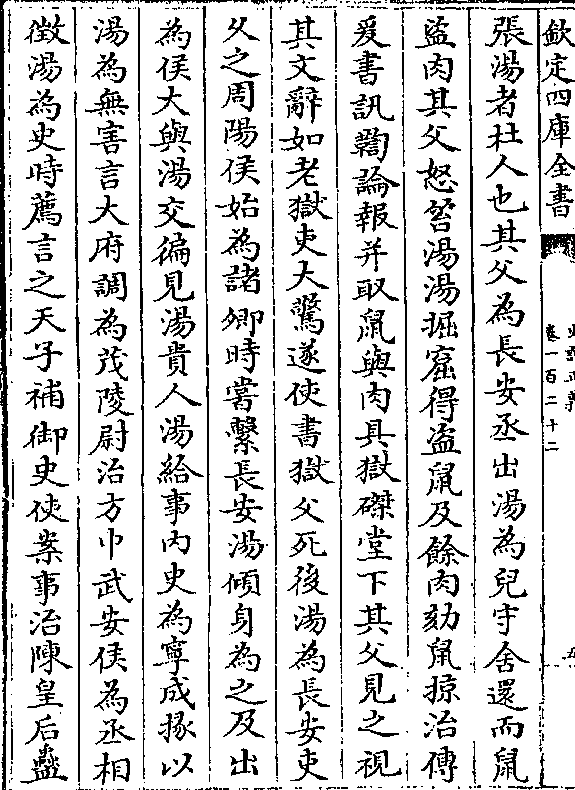 欽定四庫全書
卷一百二十二
張湯者杜人也其父為長安丞出湯為兒守舍還而鼠
盜肉其父怒笞湯湯掘窟得盜鼠及餘肉劾鼠掠治傳
爰書訊鞫論報并取鼠與肉具獄磔堂下其父見之視
其文辭如老獄吏大驚遂使書獄父死後湯為長安吏
久之周陽侯始為諸卿時嘗繫長安湯傾身為之及出
為侯大與湯交徧見湯貴人湯給事內史為寧成掾以
湯為無害言大府調為茂陵尉治方巾武安侯為丞相
徵湯為史時薦言之天子補御史使案事治陳皇后蠱